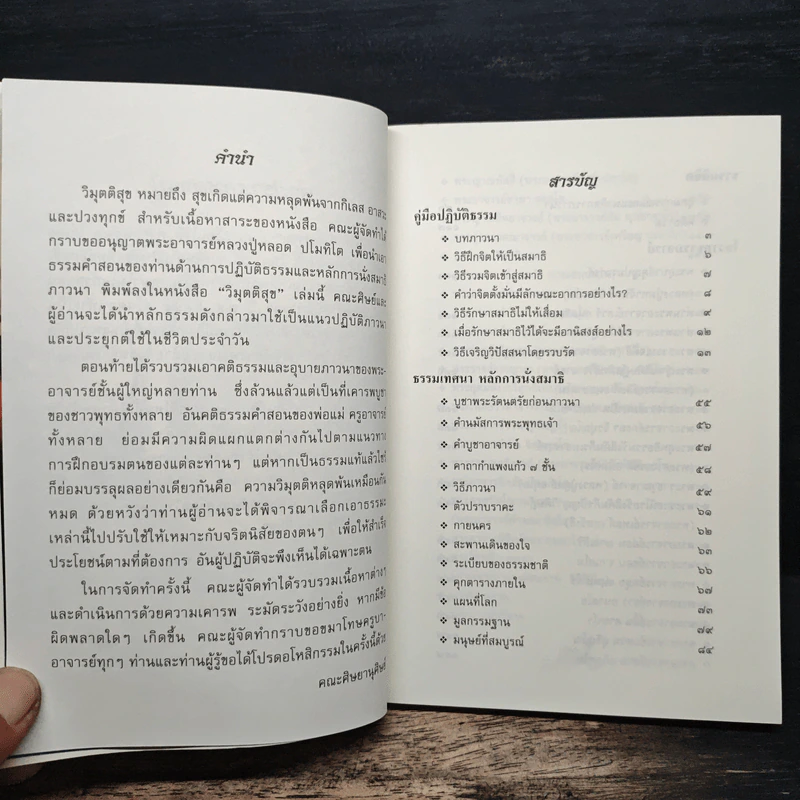 คำนำ
วิมุตติสุข หมายถึง สุขเกิดแต่ความหลุดพ้นจากกิเลส อาสวะ
และปวงทุกข์ สำหรับเนื้อหาสาระของหนังสือ คณะผู้จัดทำได้
กราบขออนุญาตพระอาจารย์หลวงปู่หลอด ปโมทิโต เพื่อนำเอา
ธรรมคำสอนของท่านด้านการปฏิบัติธรรมและหลักการนั่งสมาธิ
ภาวนา พิมพ์ลงในหนังสือ “วิมุตติสุข” เล่มนี้ คณะศิษย์และ
ผู้อ่านจะได้นำหลักธรรมดังกล่าวมาใช้เป็นแนวปฏิบัติภาวนา
และประยุกต์ใช้ในชีวิตประจำวัน
ตอนท้ายได้รวบรวมเอาคติธรรมและอุบายภาวนาของพระ-
อาจารย์ชั้นผู้ใหญ่หลายท่าน ซึ่งล้วนแล้วแต่เป็นที่เคารพบูชา
ของชาวพุทธทั้งหลาย อันคติธรรมคำสอนของพ่อแม่ ครูอาจารย์
ทั้งหลาย ย่อมมีความผิดแผกแตกต่างกันไปตามแนวทาง
การฝึกอบรมตนของแต่ละท่านๆ แต่หากเป็นธรรมแท้แล้วไซร้
ก็ย่อมบรรลุผลอย่างเดียวกันคือ ความวิมุตติหลุดพ้นเหมือนกัน
หมด ด้วยหวังว่าท่านผู้อ่านจะได้พิจารณาเลือกเอาธรรมะ
เหล่านี้ไปปรับใช้ให้เหมาะกับจริตนิสัยของตนๆ เพื่อให้สำเร็จ
ประโยชน์ตามที่ต้องการ อันผู้ปฏิบัติจะพึงเห็นได้เฉพาะตน
ในการจัดทำครั้งนี้ คณะผู้จัดทำได้รวบรวมเนื้อหาต่างๆ
และดำเนินการด้วยความเคารพ ระมัดระวังอย่างยิ่ง หากมีข้อ
ผิดพลาดใดๆ เกิดขึ้น คณะผู้จัดทำกราบขอขมาโทษครูบา-
อาจารย์ทุกๆ ท่านและท่านผู้รู้ขอได้โปรดอโหสิกรรมในครั้งนี้ด้วย
คณะศิษยานุศิษย์
สารบัญ
คู่มือปฏิบัติธรรม
❖ บทภาวนา ๓
❖ วิธีฝึกจิตให้เป็นสมาธิ ๖
❖ วิธีรวมจิตเข้าสู่สมาธิ ๗
❖ คำว่าจิตตั้งมั่นมีลักษณะอาการอย่างไร? ๘
❖ วิธีรักษาสมาธิไม่ให้เสื่อม ๙
❖ เมื่อรักษาสมาธิไว้ได้จะมีอานิสงส์อย่างไร ๑๒
❖ วิธีเจริญวิปัสสนาโดยรวบรัด ๑๓
ธรรมเทศนา หลักการนั่งสมาธิ
❖ บูชาพระรัตนตรัยก่อนภาวนา ๕๕
❖ คำนมัสการพระพุทธเจ้า ๕๖
❖ คำบูชาอาจารย์ ๕๗
❖ คาถากำแพงแก้ว ๗ ชั้น ๕๘
❖ วิธีภาวนา ๕๙
❖ ตัวปราบราคะ ๖๑
❖ กายนคร ๖๒
❖ สะพานเดินของใจ ๖๓
❖ ระเบียบของธรรมชาติ ๖๖
❖ คุกตารางภายใน ๖๗
❖ แผนที่โลก ๗๓
❖ มูลกรรมฐาน ๗๙
❖ มนุษย์ที่สมบูรณ์ ๘๔